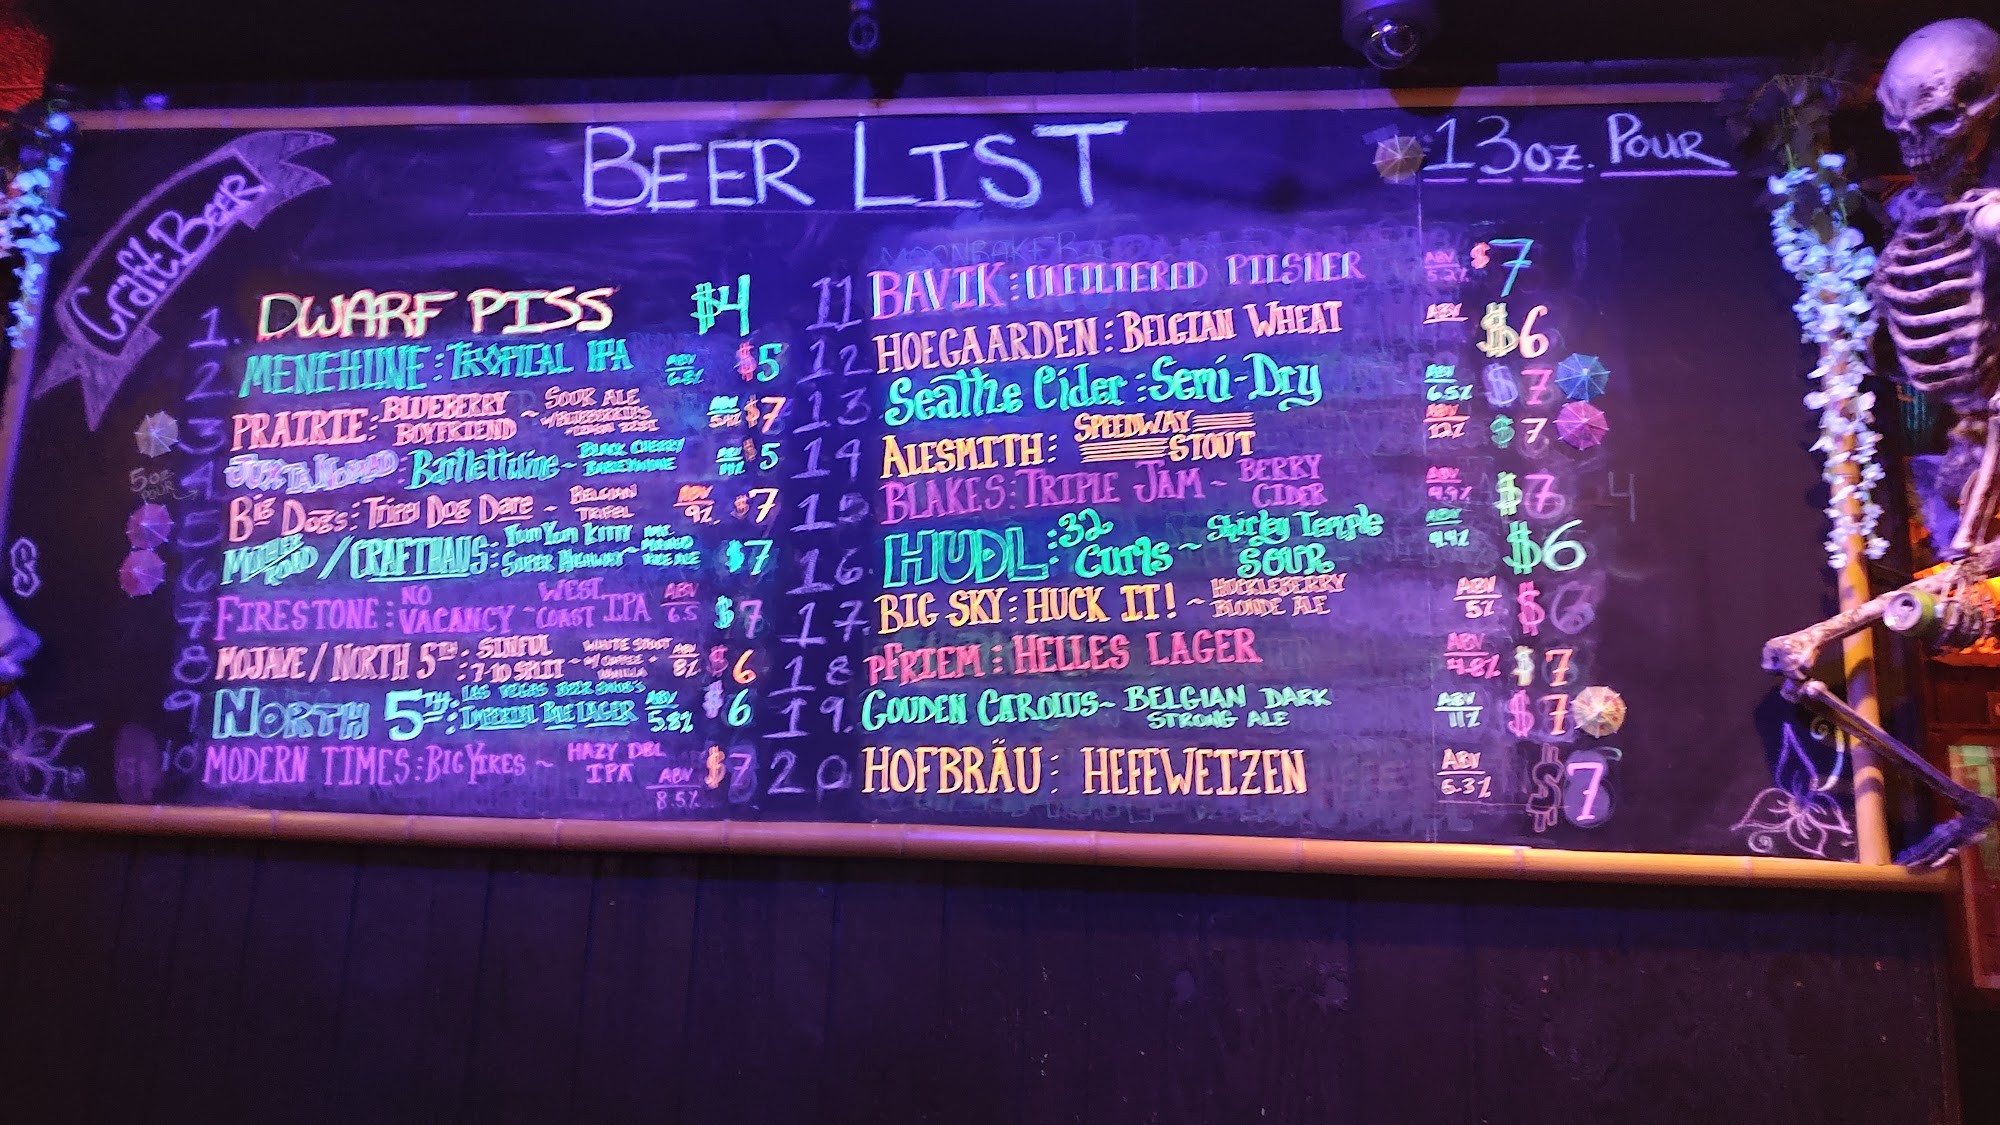 Craft Beer
BEER LIST
13oz. POUR
1. DWARF PISS $4
2 MENEHUNE: TROPICAL IPA ABV 6.8% $5
3 PRAIRIE: BLUEBERRY BOYFRIEND ~ SOUR ALE W/BLUEBERRIES + LEMON ZEST ABV 5.4% $7
5oz POUR
4 JUXTA NOMAD: Bartlettwine ~ BLACK CHERRY BARLEYWINE ABV $5
5 Big Dogs: Tripel Dog Dare ~ BELGIAN TRIPEL ABV 9% $7
6 MOTHER ROAD / CRAFTHAUS: YUM YUM KITTY SUPER HIGHWAY ~ PALE ALE $7
7 FIRESTONE: NO VACANCY ~ WEST COAST IPA ABV 6.5 $7
8 MOJAVE / NORTH 5TH: SINFUL 7-10 SPLIT ~ WHITE STOUT W/ COFFEE + VANILLA ABV 8% $6
9 NORTH 5TH: LAS VEGAS BEER IMPERIAL PALE LAGER ABV 5.8% $6
10 MODERN TIMES: BIG YIKES ~ HAZY DBL IPA ABV 8.5% $7
11 BAVIK: UNFILTERED PILSNER ABV 5.2% $7
12 HOEGAARDEN: BELGIAN WHEAT ABV $6
13 Seattle Cider: Semi-Dry ABV 6.5% $7
14 ALESMITH: SPEEDWAY STOUT ABV 12% $7
15 BLAKES: TRIPLE JAM ~ BERRY CIDER ABV 4.9% $7
16. HUDL: 32 Curls ~ Shirley Temple SOUR ABV 4.4% $6
17. BIG SKY: HUCK IT! ~ HUCKLEBERRY BLONDE ALE ABV 5% $6
18 PFRIEM: HELLES LAGER ABV 4.8% $7
19. GOUDEN CAROLUS ~ BELGIAN DARK STRONG ALE ABV 11% $7
20 HOFBRÄU: HEFEWEIZEN ABV 5.3% $7